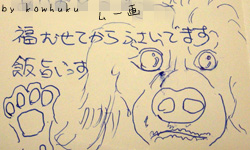 by kowhuku
ムー画
福おせてからえさいでます
飯旨いっす